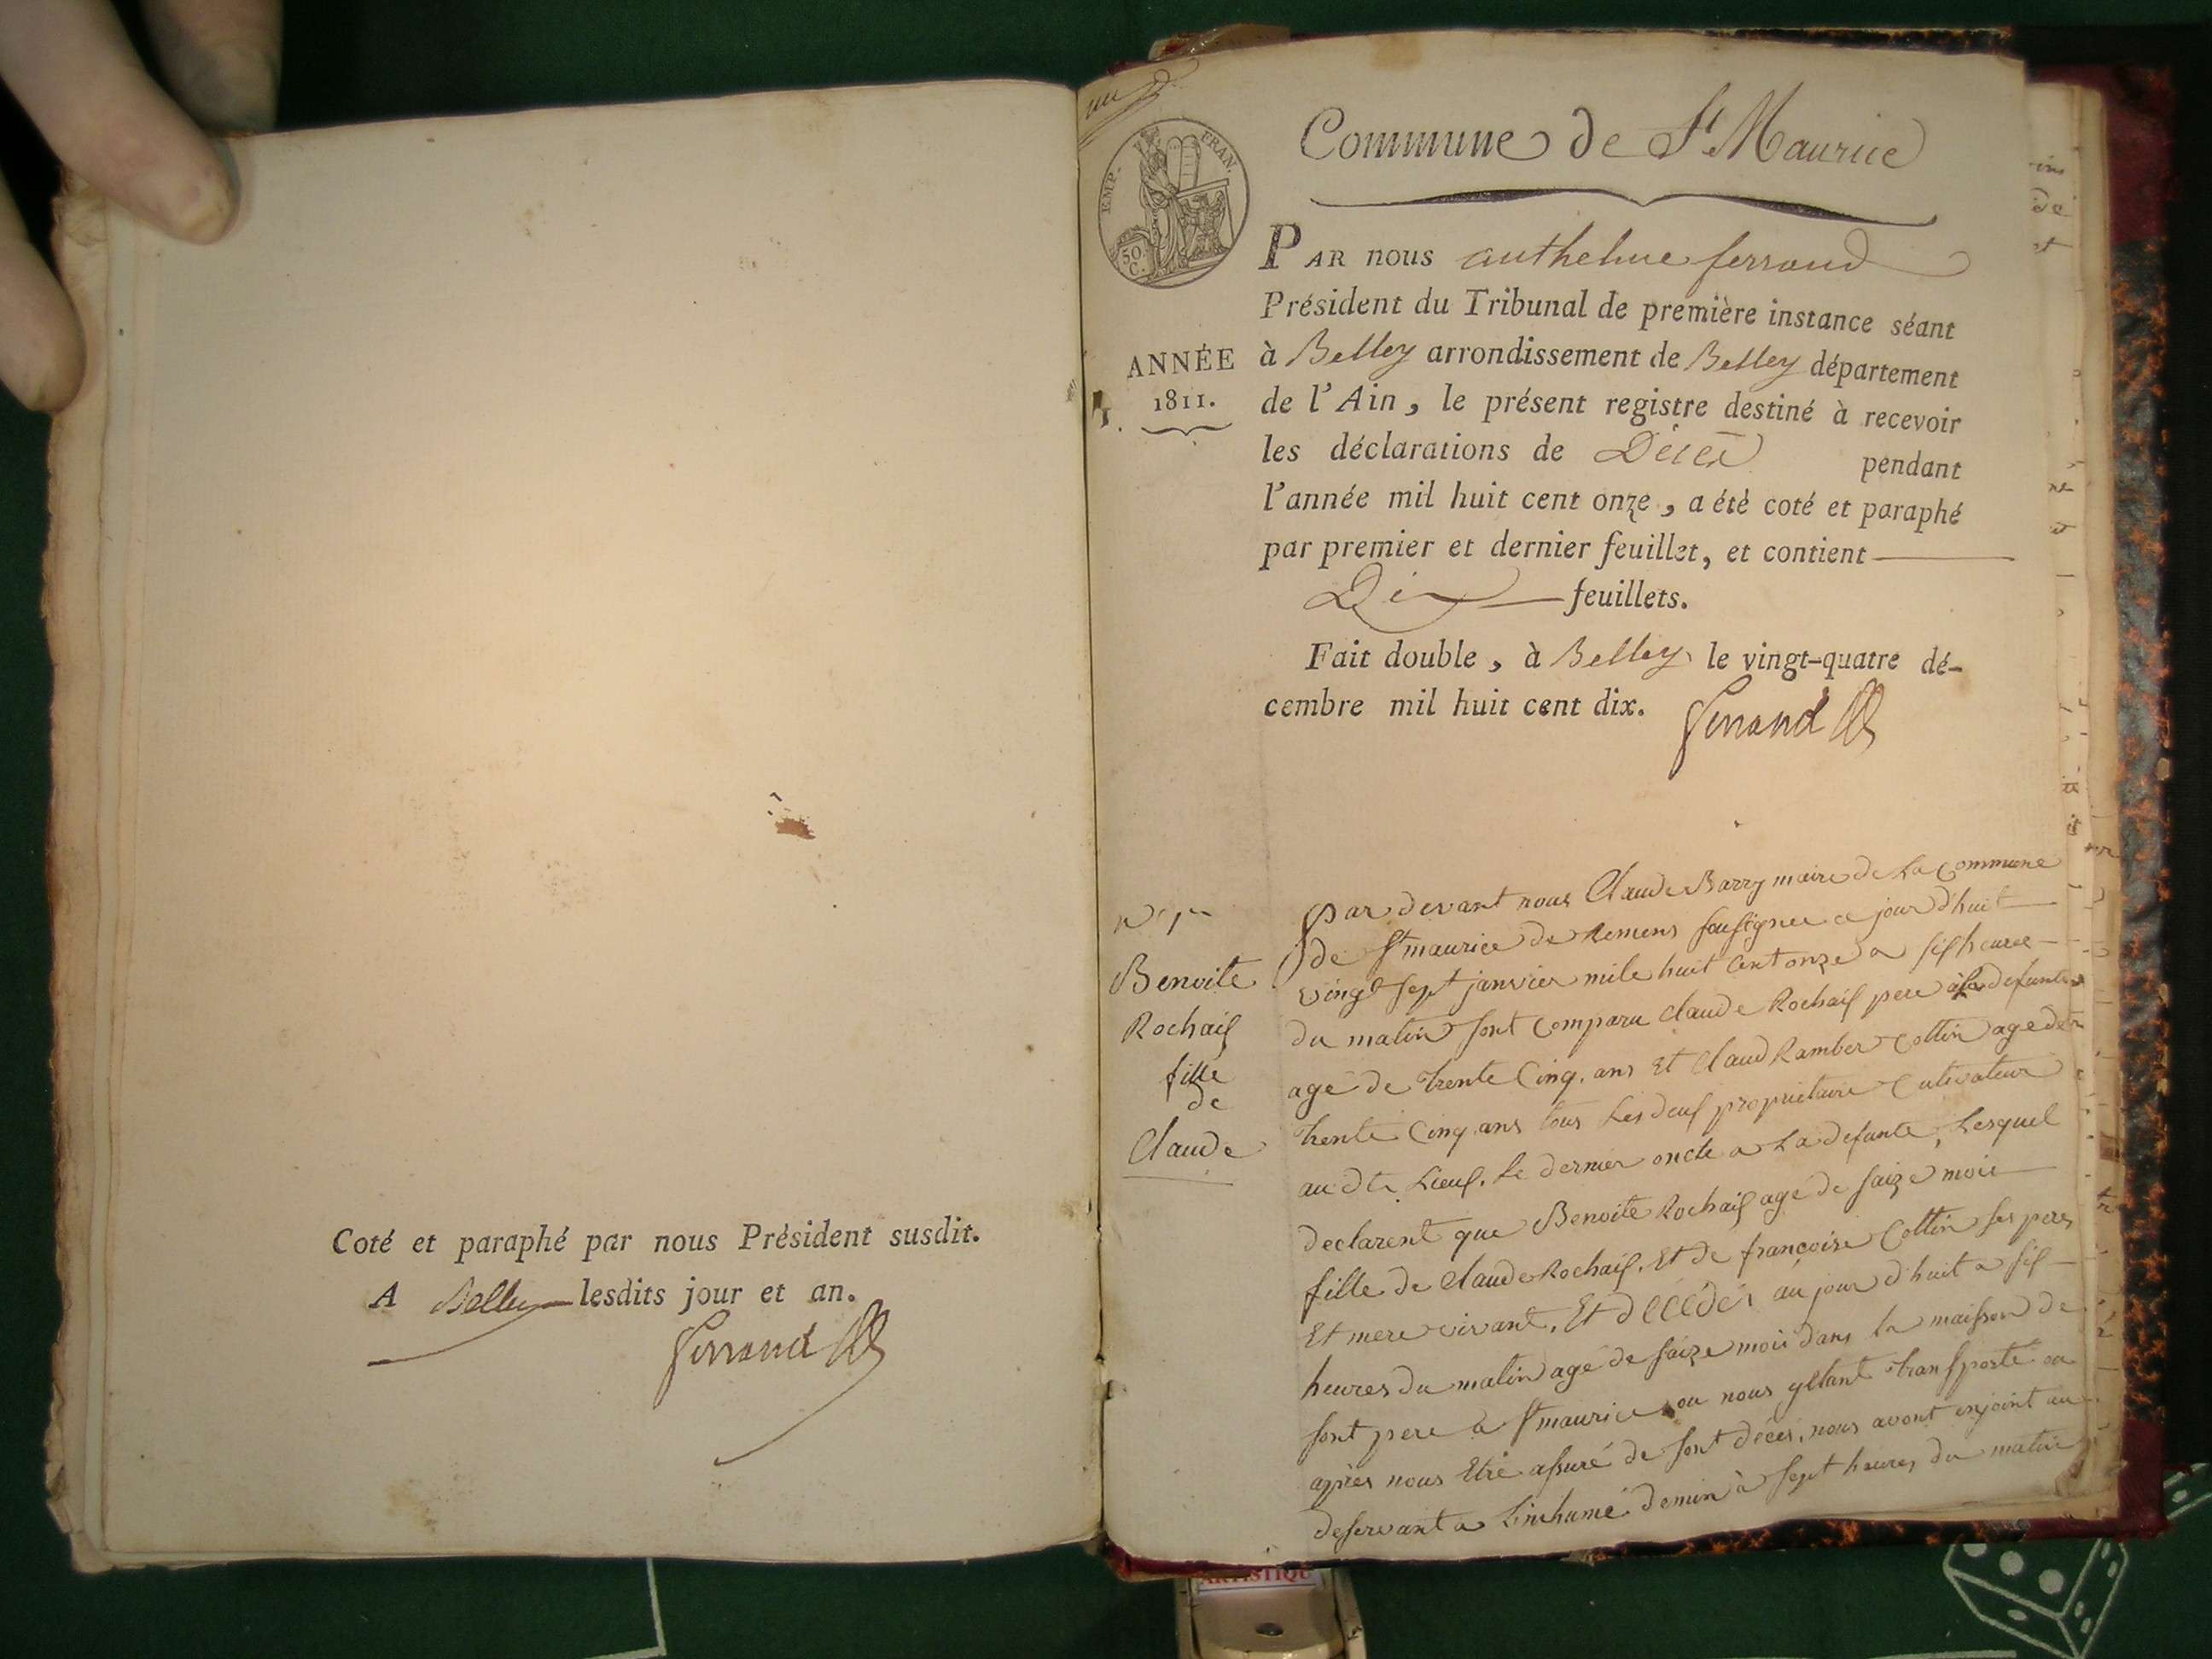 Coté et paraphé par nous Président susdit.
A Belley lesdits jour et an.
Ferrand
EMP. FRAN.
50
C.
Commune de St Maurice
PAR nous anthelme ferrand
Président du Tribunal de première instance séant
à Belley arrondissement de Belley département
de l'Ain, le présent registre destiné à recevoir
les déclarations de Décès pendant
l'année mil huit cent onze, a été coté et paraphé
par premier et dernier feuillet, et contient
Dix feuillets.
Fait double, à Belley le vingt-quatre dé-
cembre mil huit cent dix.
Ferrand
ANNÉE
1811.
N° 1er
Benoite
Rochaix
fille
de
Claude
par devant nous Claude Barry maire de La Commune
de St maurice de Remens sousignee ce jour d'huit
vingt sept janvier mile huit Cent onze a six heures
du matin sont Comparu Claude Rochaix pere à la defunte
age de trente Cinq. ans Et Claud Ramber Collin age de
trente Cinq. ans tous Les deux proprietaire Cultivateur
au dt. Lieux. Le dernier oncle a La defunte, Lesquel
declarent que Benoite Rochaix age de saize mois
fille de Claude Rochaix. Et de françoise Collin ses peres
Et mere vivant. Et décédés aujour d'huit a six
heures du matin age de saize mois dans la maisson de
sont pere a St maurice ou nous y étant transporté ou
apres nous Etre assuré de sont décés, nous avont enjoint au
deservant a L'inhumé demin à sept heures du matin
ARTISTIQU